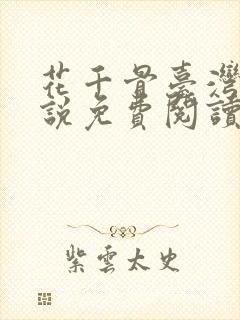 花千骨臺灣
說免費閱讀
紫雲太史